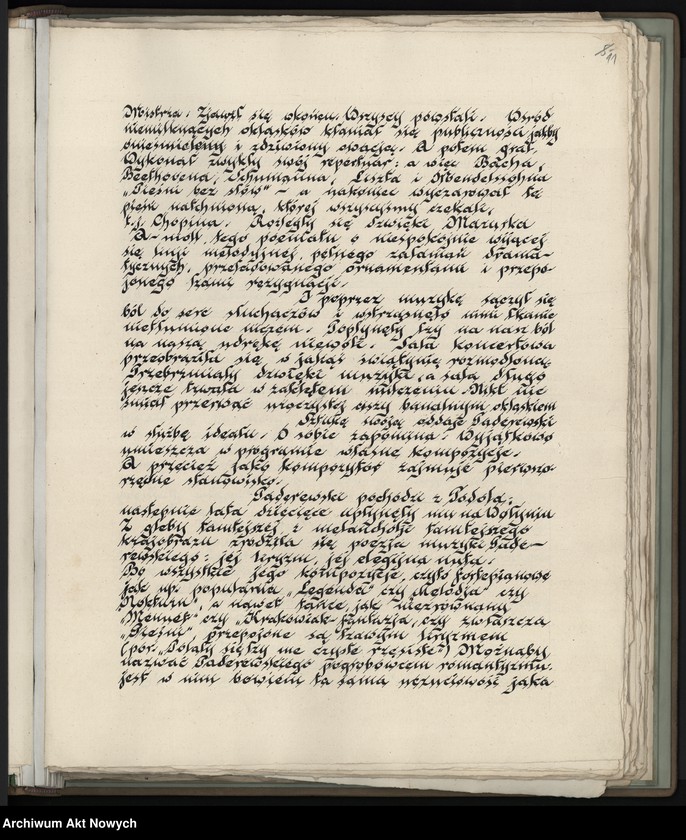 8/11
Mistrza. Zjawił się wkońcu. Wszyscy powstali. Wśród
niemilknących oklasków kłaniał się publiczności jakby
onieśmielony i zdziwiony owacją. A potem grał.
Wykonał zwykły swój repertuar: a więc Bacha,
Beethovena, Schumanna, Liszta i Mendelssohna
„Pieśni bez słów" – a nakoniec wyczarował tę
pieśń natchnioną, której wszyscyśmy czekali,
t.j. Chopina. Rozległy się dźwięki Mazurka
A-moll, tego poematu o niespokojnie wijącej
się linji melodyjnej, pełnego załamań drama-
tycznych, przeładowanego ornamentami i przepo-
jonego łzami rezygnacji.
I poprzez muzykę sączył się
ból do serc słuchaczów i wstrząsnęło nimi łkanie
niestłumione niczem. Popłynęły łzy na nasz ból
na naszą udrękę niewoli. Sala koncertowa
przeobraziła się w jakąś świątynię rozmodloną.
Przebrzmiały dźwięki muzyki, a sala długo
jeszcze trwała w zaklętem milczeniu. Nikt nie
śmiał przerwać uroczystej ciszy banalnym oklaskiem
Sztukę swoją oddaje Paderewski
w służbę ideału. O sobie zapomina. Wyjątkowo
umieszcza w programie własne kompozycje.
A przecież jako kompozytor zajmuje pierwszo-
rzędne stanowisko.
Paderewski pochodzi z Podola;
następnie lata dziecięce upłynęły mu na Wołyniu
Z gleby tamtejszej, z melancholii tamtejszego
krajobrazu zrodziła się poezja muzyki Pade-
rewskiego: jej liryzm, jej elegijna nuta.
Bo wszystkie jego kompozycje, czysto fortepianowe
jak np. popularna „Legenda" czy „Melodja" czy
„Nokturn", a nawet tańce, jak niezrównany
„Menuet" czy „Krakowiak-fantazja, czy zwłaszcza
„Pieśni", przepojone są łzawym liryzmem
(por. „Polały się łzy me czyste rzęsiste") Możnaby
nazwać Paderewskiego pogrobowcem romantyzmu.
Jest w nim bowiem ta sama uczuciowość jaka
Archiwum Akt Nowych